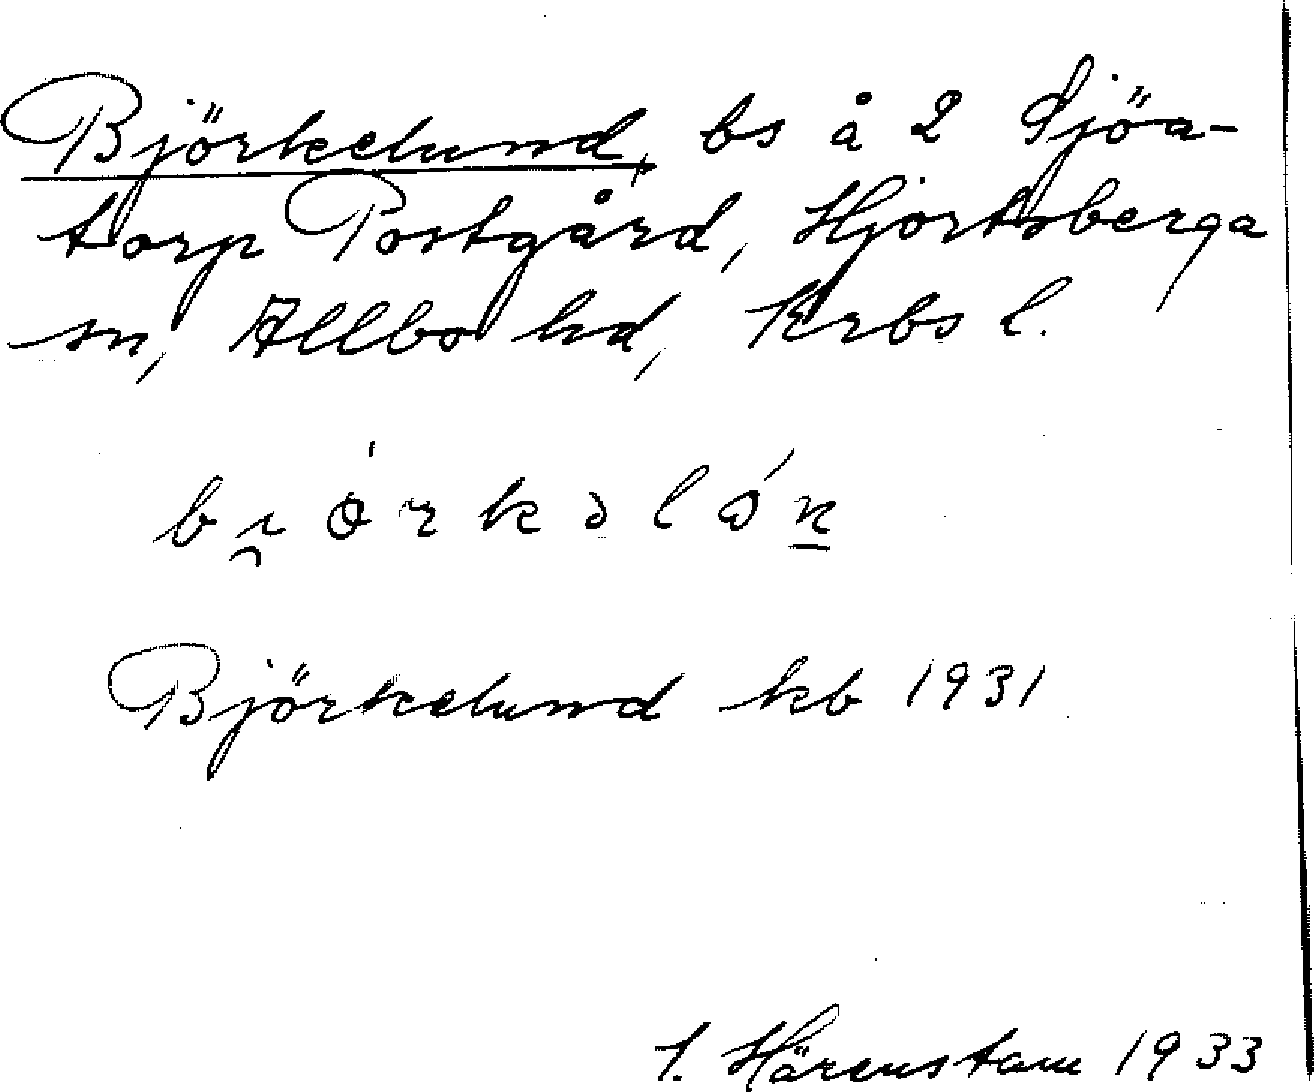 Björkelund, bs å 2 Sjöa-
torp Postgård, Hjortsberga
sn, Allbo hd, Krbs l.
Björkelund kb 1931
I. Härenstam 1933